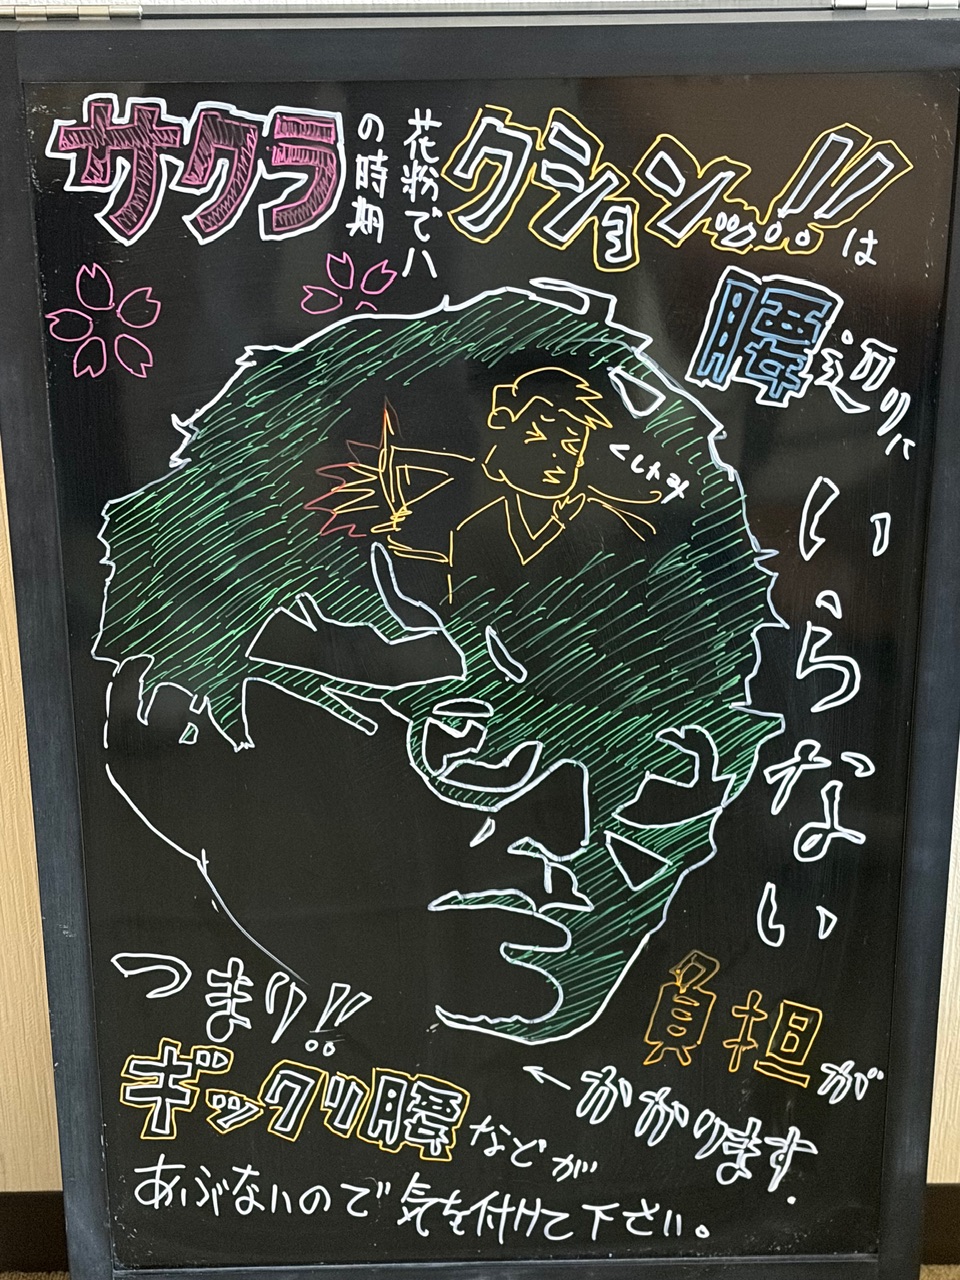 サクラ
の時期
花粉でハ
クションッ...!!は
腰辺りに
いらない
負担が
かかります.
くしゃみ
つまり!!
ギックリ腰などが
あぶないので気を付けて下さい。